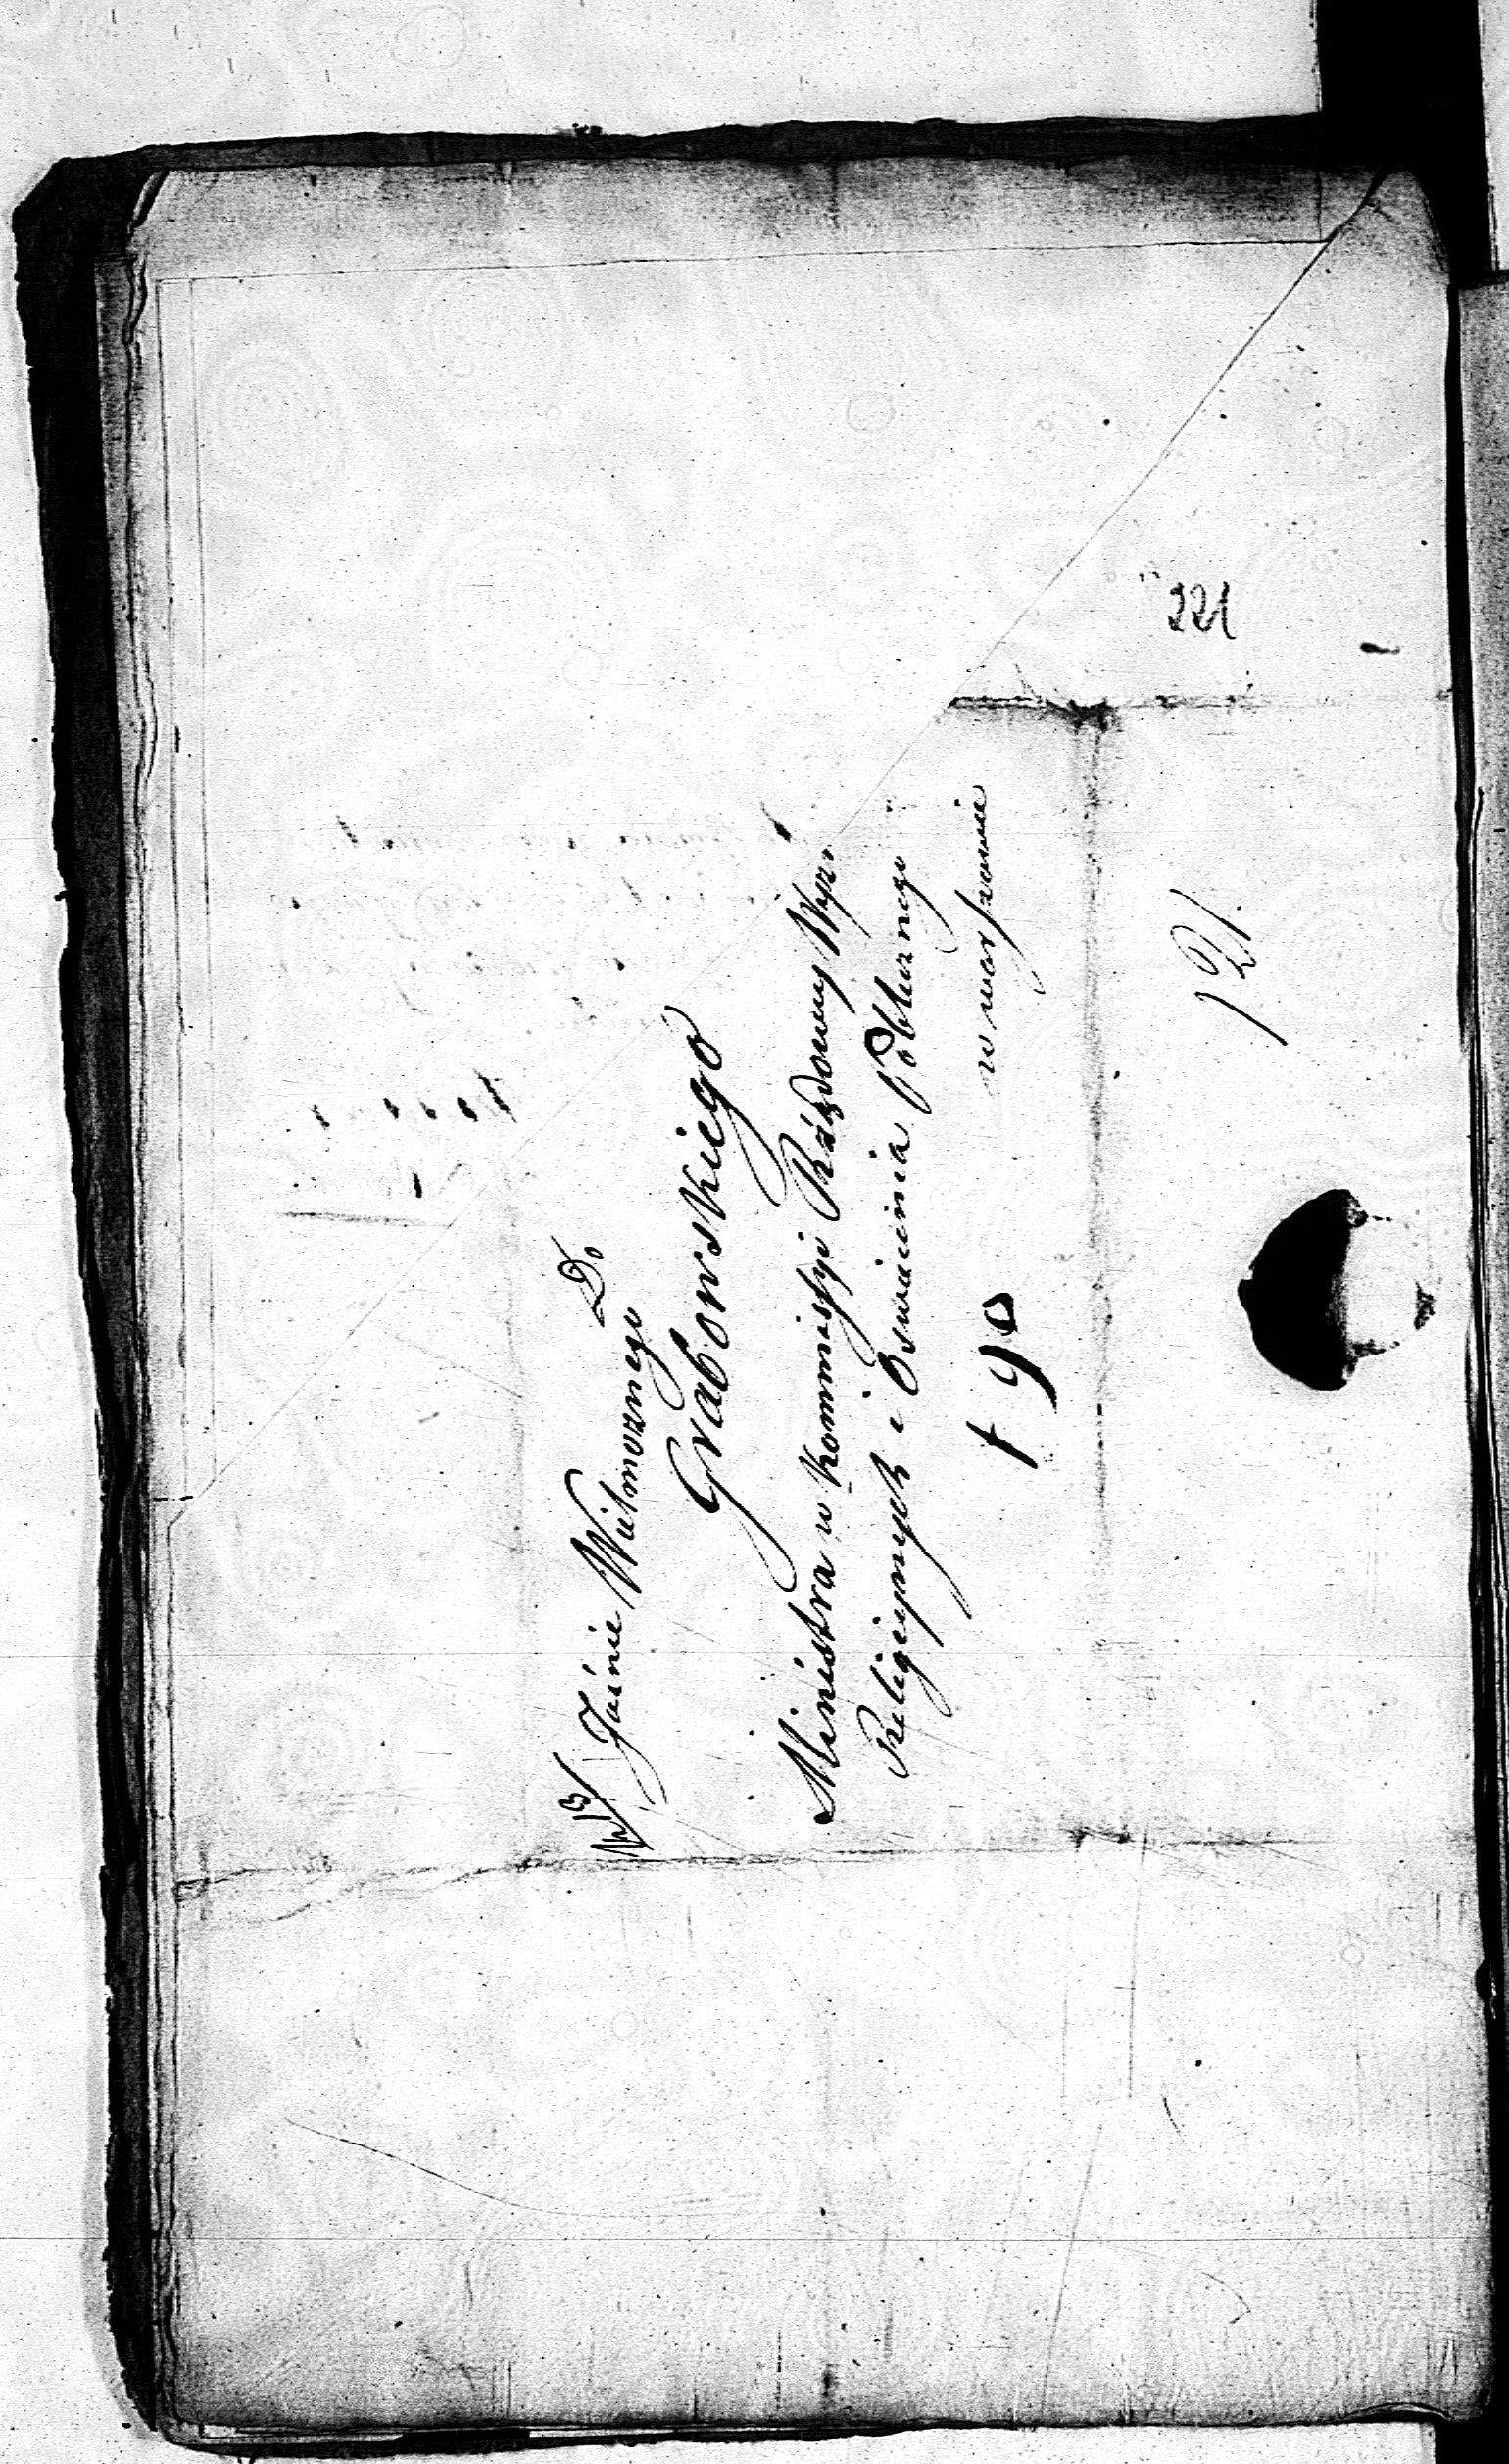 Do
Jaśnie Wielmożnego
Grabowskiego
Ministra w Kommissyi Rządowey Wyzn
Religiynych i Oswiecenia Publicznego
w Warszawie
190
121
221